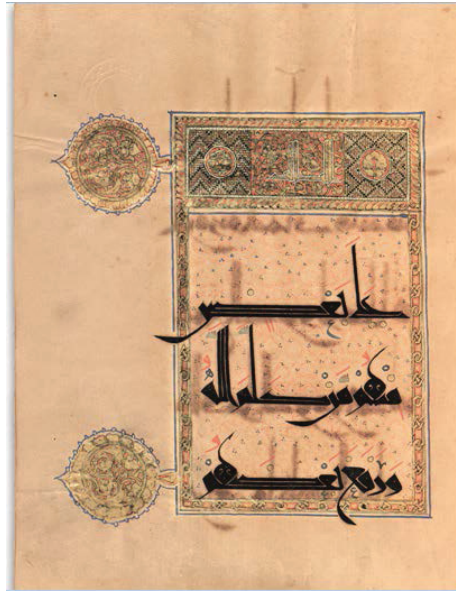 على بعض
منهم من كلم الله
ورفع بعضهم